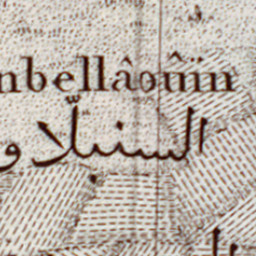 nbellâouïn
السنبلاو